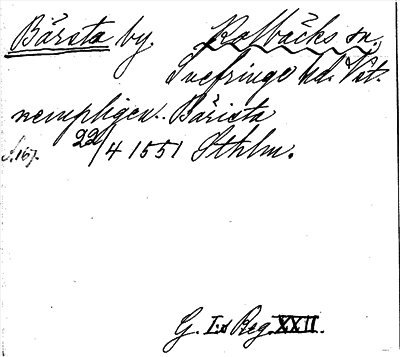 Bärsta by. Kolbäcks sn.,
Snefringe hd. Vst.
nempligen.. Bärista
S. 167. 22/4 1551 Sthlm.
G. I:s Reg. XXII.